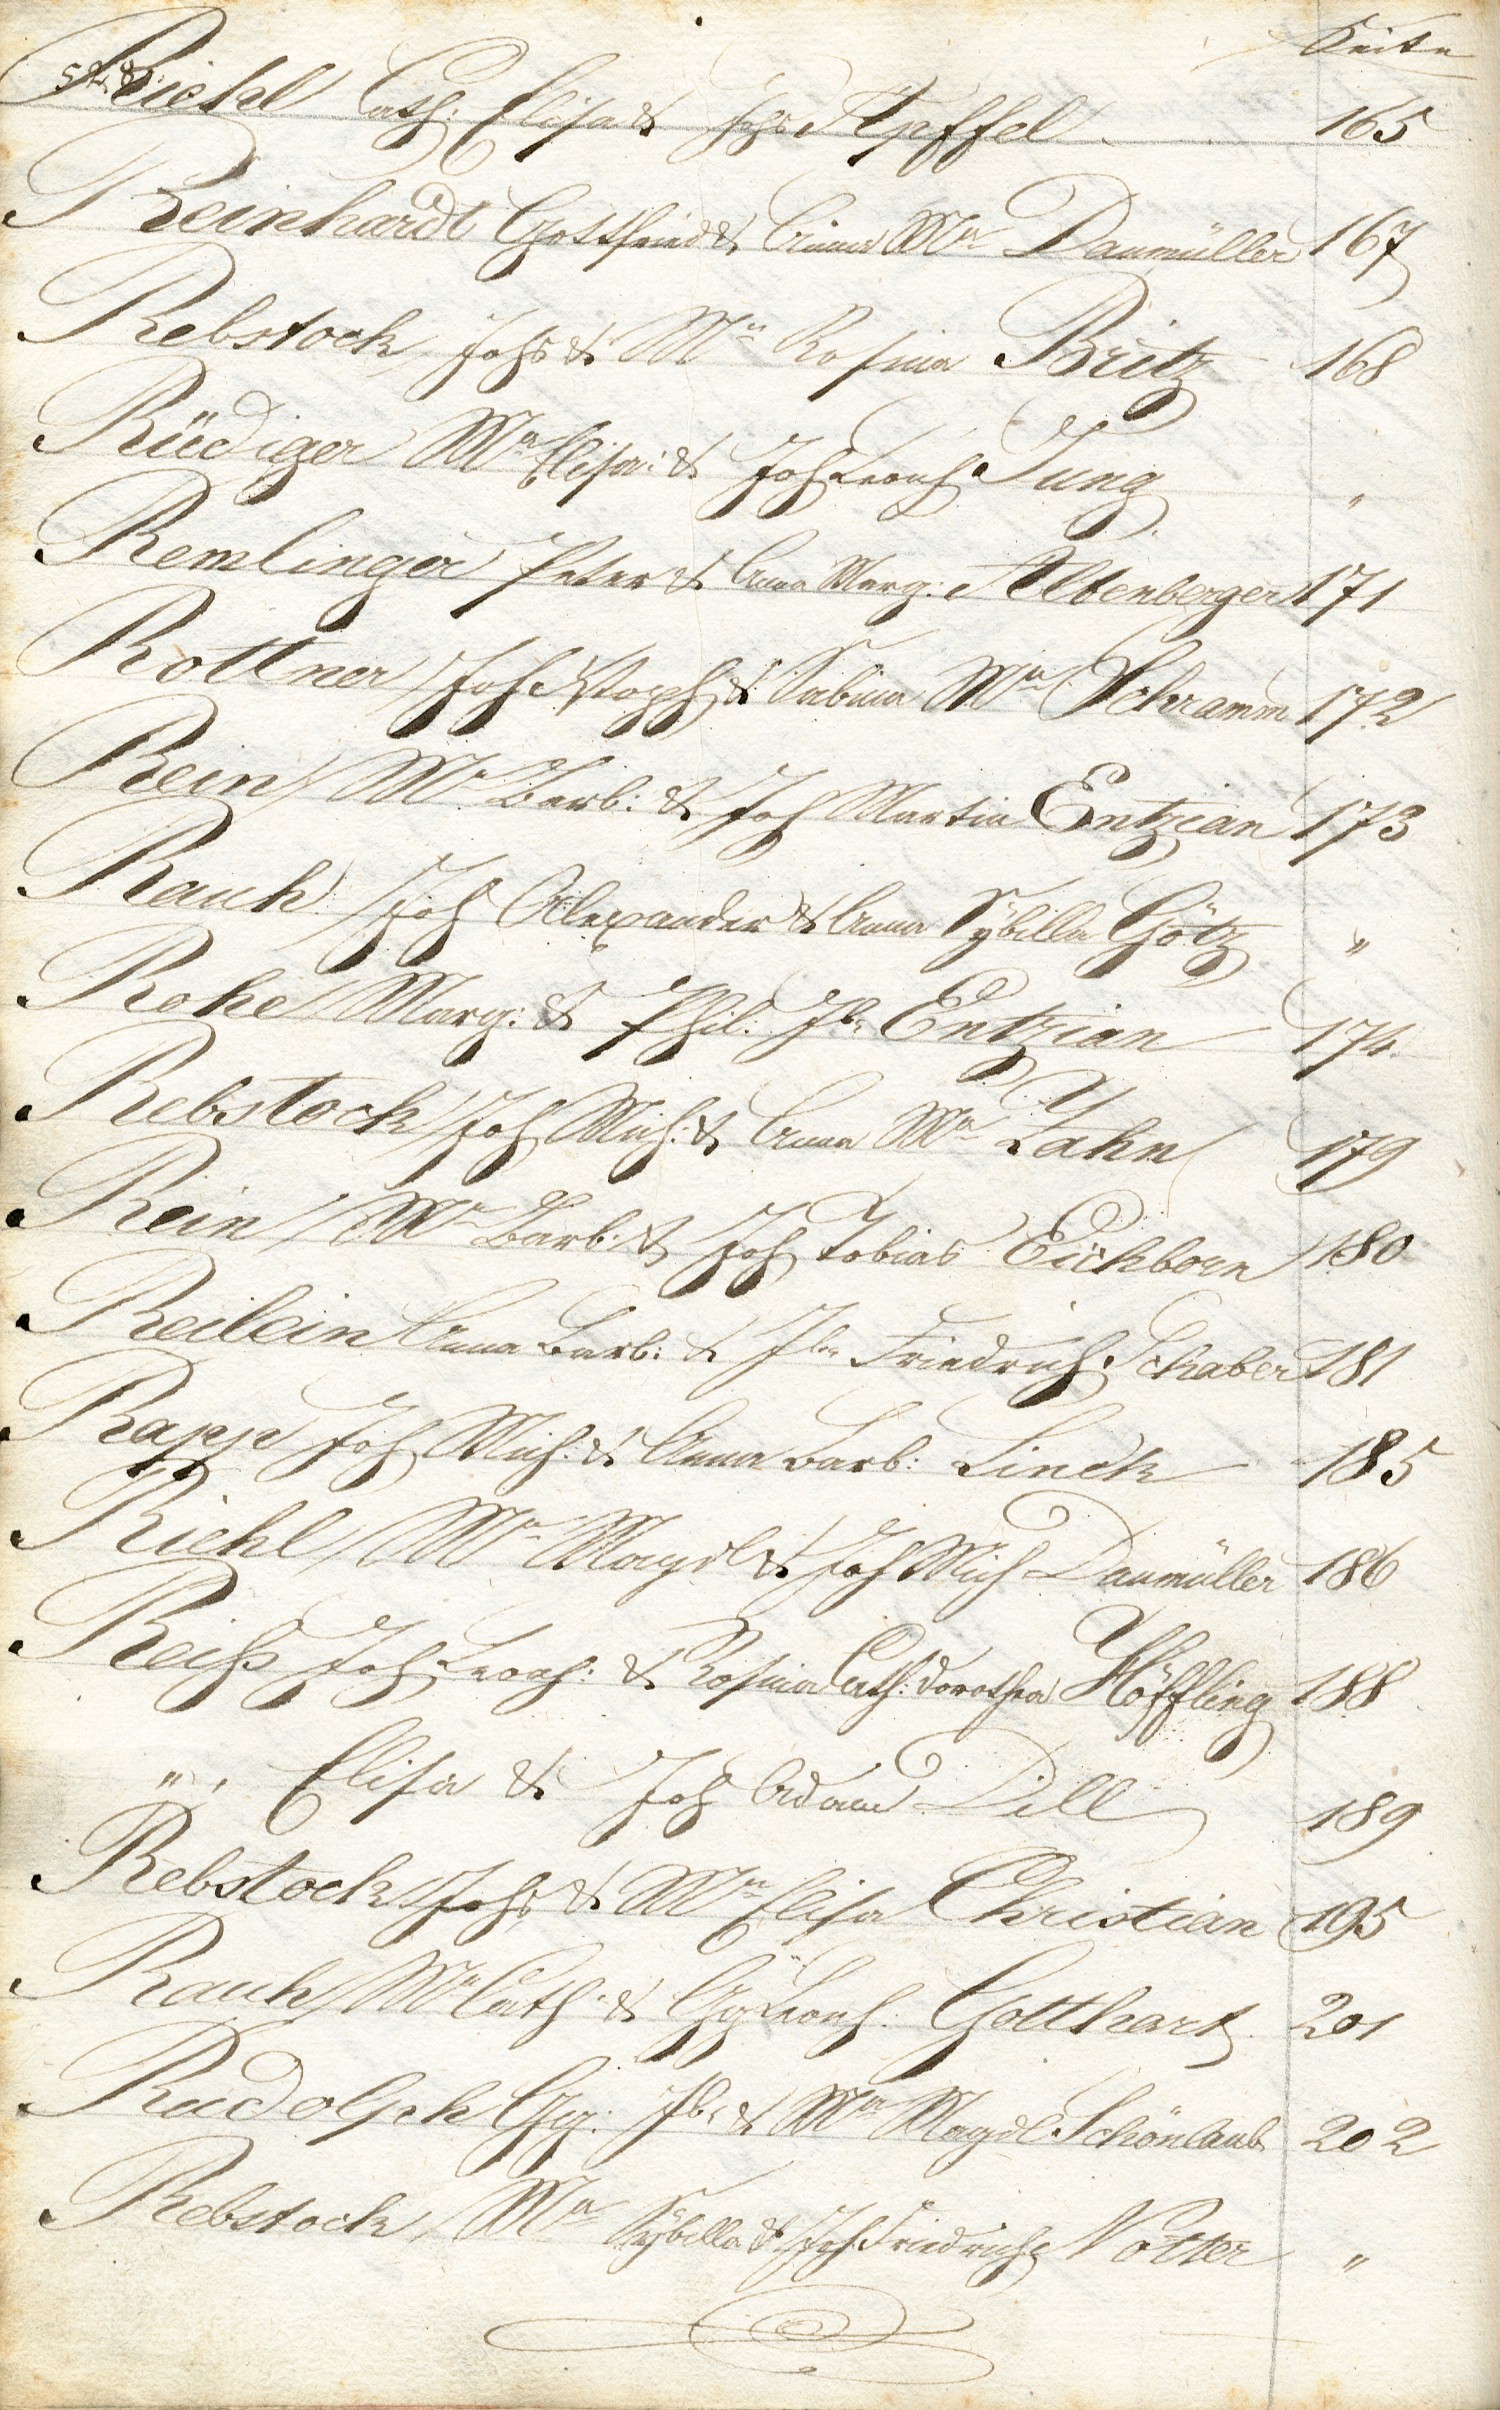 Seite
Riehl Cath: Elisa & Johs Apffel 165
Reinhardt Gottfried & Anna Ma Daumüller 167
Rebstock Johs & Ma Rosina Britz 168
Rüdiger Ma Elisa: & Joh Leonh Jung "
Remlinger Peter & Anna Marg: Altenberger 171
Rottner Joh Xstoph & Sabina Ma Schramm 172
Rein Ma Barb: & Joh Martin Entzian 173
Rauh Joh Alexander & Anna Sÿbilla Götz "
Rohe Marg: & Phil: Jb Entzian 174
Rebstock Joh Mich: & Anna Ma Zahn 179
Rein Ma Barb: & Joh Tobias Eichborn 180
Reilein Anna Barb: & Jb Friedrich Schaber 181
Rapp Joh Mich: & Anna Barb: Linck 185
Riehl Ma Magdl & Joh Mich Daumüller 186
Reiß Joh Leonh: & Rosina Cath: Dorothea Höffling 188
" Elisa & Joh Adam Dill 189
Rebstock Johs & Ma Elisa Christian 195
Rauh Ma Cath: & Gg Leonh: Gotthart 201
Rudolph Gg: Jb & Ma Magdl Schönlaub 202
Rebstock Ma Sÿbilla & Joh Friedrich Notter "